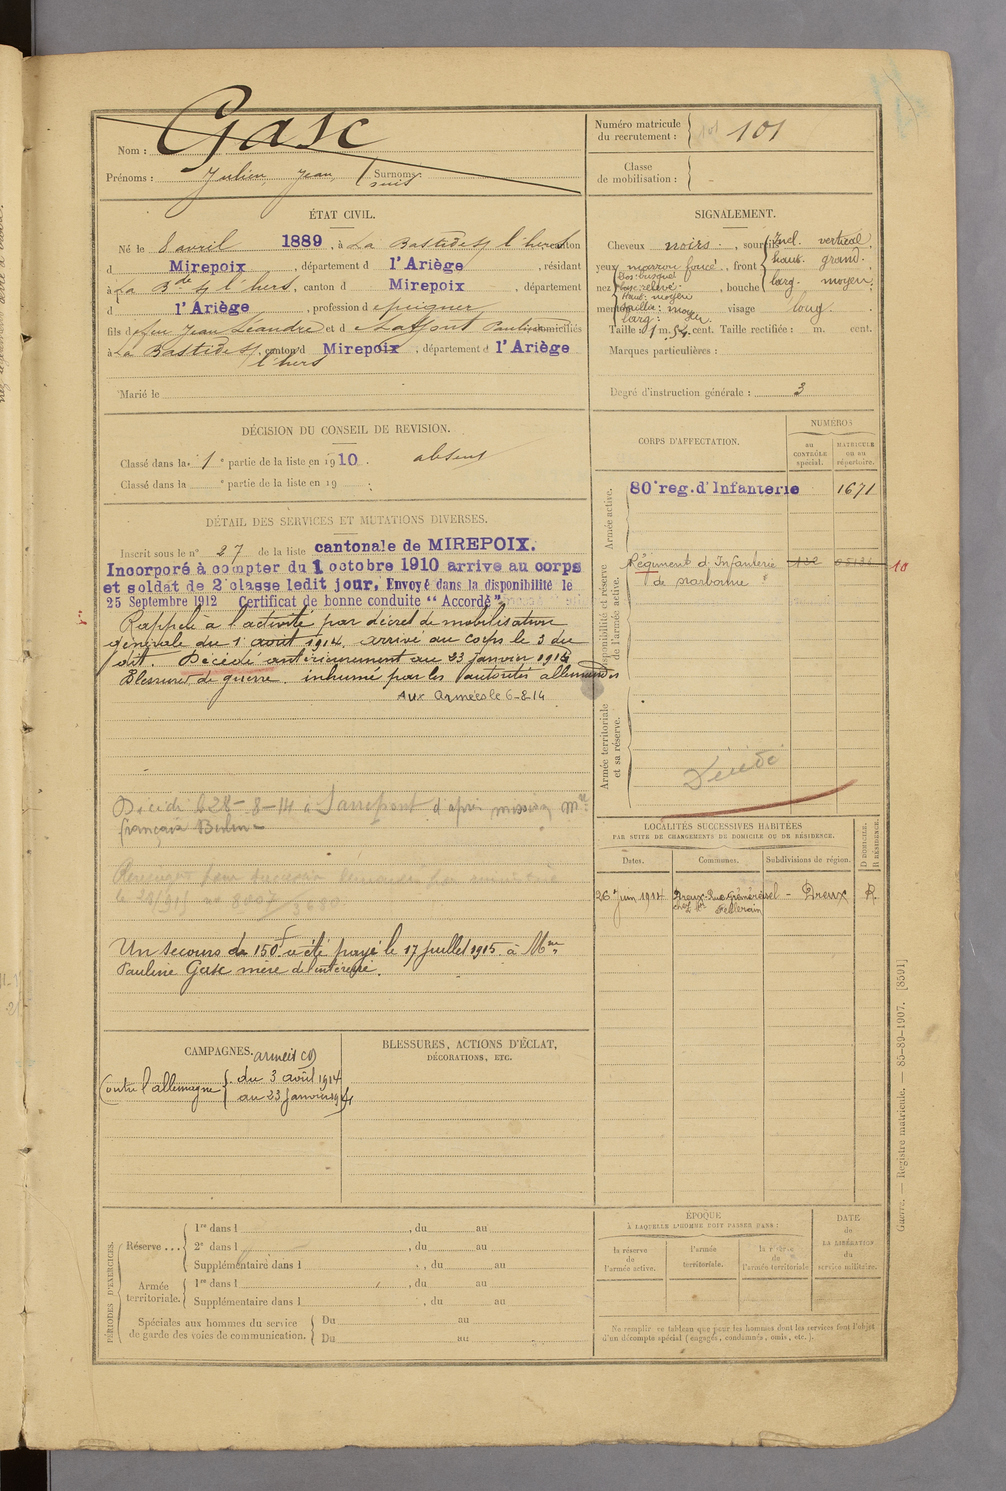 Nom : Gasc
Prénoms : Julien, Jean, Surnoms :
Numéro matricule du recrutement : 101
Classe de mobilisation : -
ÉTAT CIVIL.
Né le 8 avril 1889, à La Bastide s/ l'hers, canton
d Mirepoix, département d l'Ariège, résidant
à La Bde s/ l'hers, canton d Mirepoix, département
d l'Ariège, profession d peigneur
fils d feu Jean Léandre et d Laffont Pauline domiciliés
à La Bastide s/ l'hers, canton d Mirepoix, département d l'Ariège
Marié le
SIGNALEMENT.
Cheveux noirs, sourcils
yeux marron foncé, front
Incl. vertical
haut. grand.
larg. moyen.
nez
Dos: busqué
base: relevé
Haut: moyen
Saillie: moy
larg: moy
, bouche
menton visage long.
Taille : 1 m. 54 cent. Taille rectifiée : m. cent.
Marques particulières :
Degré d'instruction générale : 3
DÉCISION DU CONSEIL DE REVISION.
Classé dans la 1e partie de la liste en 1910. absent
Classé dans la e partie de la liste en 19 .
CORPS D'AFFECTATION.
NUMÉROS
au CONTRÔLE spécial.
MATRICULE ou au répertoire.
Armée active.
80e reg. d'Infanterie 1671
Disponibilité et réserve de l'armée active.
Régiment d'Infanterie
de Narbonne
10
Armée territoriale et sa réserve.
Décédé
DÉTAIL DES SERVICES ET MUTATIONS DIVERSES.
Inscrit sous le n° 27 de la liste cantonale de MIREPOIX.
Incorporé à compter du 1 octobre 1910 arrive au corps
et soldat de 2e classe ledit jour, Envoyé dans la disponibilité le
25 Septembre 1912 Certificat de bonne conduite “ Accordé ”
Rappelé à l'activité par décret de mobilisation
générale du 1er août 1914. arrivé au corps le 3 du
dit. Décédé antérieurement au 23 janvier 1915
Blessures de guerre. inhumé par les autorités allemandes
Aux Armées le 6-8-14
Décédé le 28-8-14 à d'après
français Berlin
Un secours de 150f a été payé le 17 juillet 1915 à Mme
Pauline Gasc mère de l'intéressé.
LOCALITÉS SUCCESSIVES HABITÉES
PAR SUITE DE CHANGEMENTS DE DOMICILE OU DE RÉSIDENCE.
Dates. Communes. Subdivisions de région. D DOMICILE. R RÉSIDENCE.
26 Juin 1914 Dreux - Rue chez Mr Pellerain - Dreux R.
CAMPAGNES. armeis CD
Contre l'allemagne du 3 août 1914
au 23 Janvier
BLESSURES, ACTIONS D'ÉCLAT,
DÉCORATIONS, ETC.
PÉRIODES D'EXERCICES.
Réserve ...
1re dans l , du au
2e dans l , du au
Supplémentaire dans l , du au
Armée territoriale.
1re dans l , du au
Supplémentaire dans l , du au
Spéciales aux hommes du service de garde des voies de communication.
Du au
Du au
ÉPOQUE
À LAQUELLE L'HOMME DOIT PASSER DANS :
la réserve de l'armée active.
l'armée territoriale.
la réserve de l'armée territoriale
DATE de LA LIBÉRATION du service militaire.
Ne remplir ce tableau que pour les hommes dont les services font l'objet
d'un décompte spécial (engagés, condamnés, omis, etc.).
Guerre. — Registre matricule. — 85-89-1907. [8591]